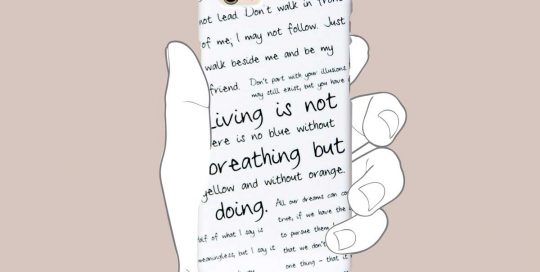 not lead. Don't walk in front
of me, I may not follow. Just
walk beside me and be my
friend. Don't part with your illusions
may still exist, but you have
Living is not
ere is no blue without
breathing but
yellow and without orange.
doing. All our dreams can co
true, if we have the
alf of what I say is to pursue them
meaningless, but I say it that we don't
one thing - that i